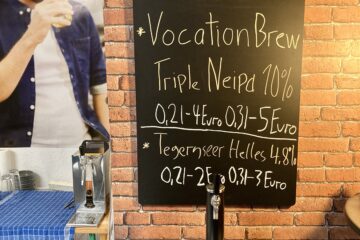 *VocationBrew
Triple Neipa 10%
0,2l-4Euro 0,3l-5Euro
*Tegernseer Helles 4,8%
0,2l-2Euro 0,3l-3Euro